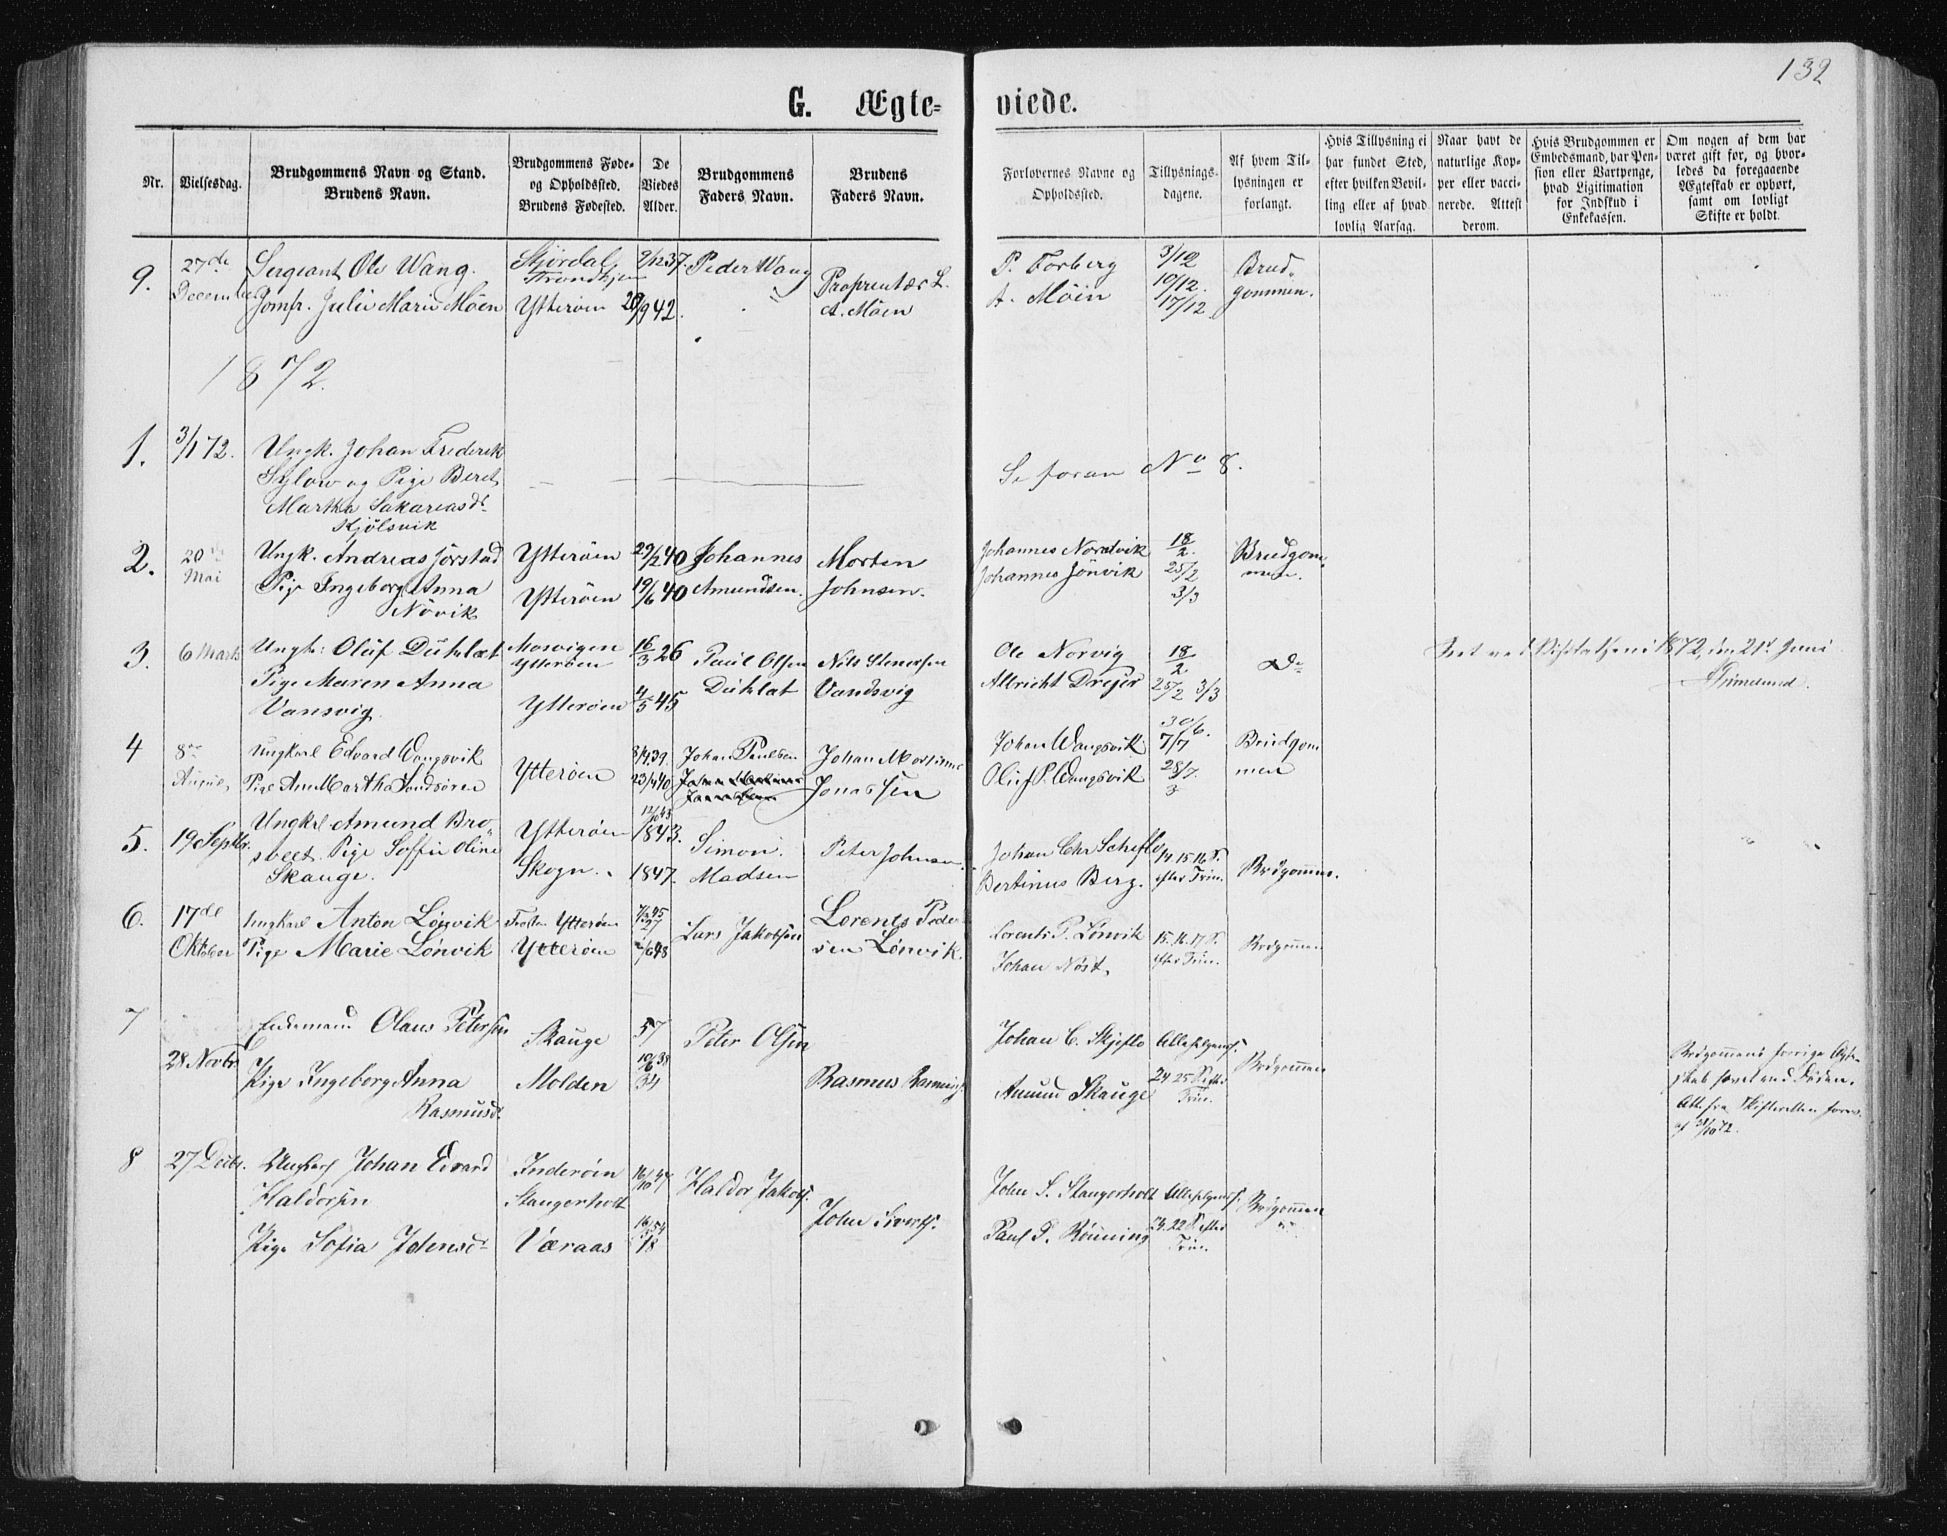 132
G. Ægte-
viede.
Nr.
Vielsesdag.
Brudgommens Navn og Stand.
Brudens Navn.
Brudgommens Føde-
og Opholdssted.
Brudens Fødested.
De
Viedes
Alder.
Brudgommens
Faders Navn.
Brudens
Faders Navn.
Forlovernes Navne og
Opholdssted.
Tillysnings-
dagene.
Af hvem Til-
lysningen er
forlangt.
Hvis Tillysning ei
har fundet Sted,
efter hvilken Bevil-
ling eller af hvad
lovlig Aarsag.
Naar havt de
naturlige Kop-
per eller vacci-
nerede. Attest
derom.
Hvis Brudgommen er
Embedsmand, har Pen-
sion eller Vartpenge,
hvad Ligitimation
for Indskud i
Enkekassen.
Om nogen af dem har
været gift før, og hvor-
ledes da foregaaende
Ægteskab er ophørt,
samt om lovligt
Skifte er holdt.
9.
27de
Decemb
Sergeant Ole Wang.
Jomfr. Julie Marie Möen
Stjørdal
Trondhjem
Ytterøen
2/12 37.
20/9 42.
Peder Wang
Proprentær L.
A. Möen
P. Forberg
A. Möin
3/12
10/12.
17/12
Brud-
gommen.
1872.
1.
3/1 72.
Ungk. Johan Frederik
Sylow og Pige Beret
Martha Sakariasdt
Kjölsvik
Se foran No 8.
2.
20
Mai
Ungk. Andreas Jörstad
Pige Ingeborg Anna
Növik
Ytterøen
Ytterøen
29/2 40
19/6 40
Johannes
Amundsen.
Morten
Johnsen.
Johannes Nordvik
Johannes Jönvik
18/2.
25/2
3/3
Brudgom-
men.
3.
6 Marts
Ungk: Oluf Duhlat
Pige Maren Anna
Vansvig
Mosvigen
Ytteröen
Ytterøen
16/3 26
4/5 45
Paul Olsen
Duhlat
Nils Stenersen
Vandsvig
Ole Norvig
Albricht Dreyer
18/2
25/2 3/3
Do
1872, den 21d Juni
4
8de
Ungkarl Edvard Vangsvik
Pige Ane Martha Sundsören
Ytterøen
8/4 39.
23/4 40.
Johan Paulsen
Johan Mortinus
Jonassen
Johan Wangsvik
Oluf P. Wangsvik
30/6.
7/7
28/7.
Brudgom
men
5.
19 Septbr.
Ungkl Amund Bro-
sveet. Pige Soffie Oline
Skauge.
Ytterøen
Skogn.
1843.
1847.
Simon
Madsen
Peter Johnsen
Johan Chr Scheflo
Bertinus Berg.
14. 15. 16 S.
efter Trin.
Brdgommen.
6.
17de
Oktober
Ungkarl Anton Lönvik
Pige Marie Lönvik
Ytterøen
Ytterøen
Lars Jakobsen
Lorents Peder-
sen Lönvik.
Lorents P. Lönvik
Johan Nöst.
15. 16. 17. S.
efter Trin.
Brdgommen
7
28 Novbr.
Enkemand Olaus Petersen
Pige Ingeborg Anna
Rasmusdt
Skauge
Molden
57
10/6 38
34
Peter Olsen
Rasmus
Johan C. Skjeflo
Amund Skauge
24 25 S. efter
Trin.
Brdgommen
Brdgommens forrige Ægte-
8
27 Decbr.
Ungkarl Johan Edvard
Haldorsen
Pige Sofia Johnsdt
Inderøen
Stangerholt
Væraas
16/10 47
18
Haldor Jakobs.
John Siverts.
John S. Stangerholt
Paul P. Rönning
22 S. efter
Trin.
Brdgommen